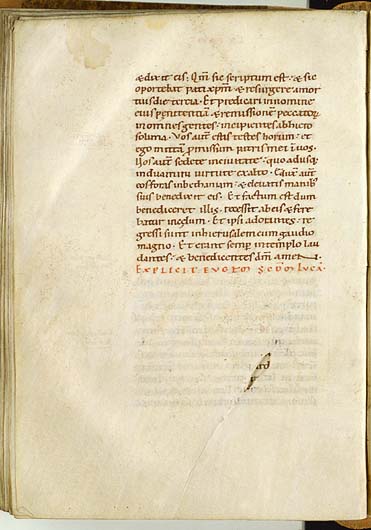 & dixit eis. Qm̄ sic scriptum est. & sic
oportebat pati xp̄m & resurgere a mor
tuis die tercia. Et predicari in nomine
eius penitentiā & remissionem peccatoꝝ
in omnes gentes. incipientes ab hiero
solima. Vos autē estis testes horum. et
ego mittā p̄missum patris mei in uos.
Vos autē sedete in ciuitate. quo adusq;
induamini uirtute ex alto. autē
eos foras in bethaniam. & eleuatis manib;
suis benedixit eis. Et factum est dum
benediceret illis. recessit ab eis & fere
batur in celum. Et ipsi adorantes. re
gressi sunt in hierusalem cum gaudio
magno. Et erant semp̄ in templo lau
dantes. & benedicentes dm̄ amen.
EXPLICIT SCDM LUCĀ.